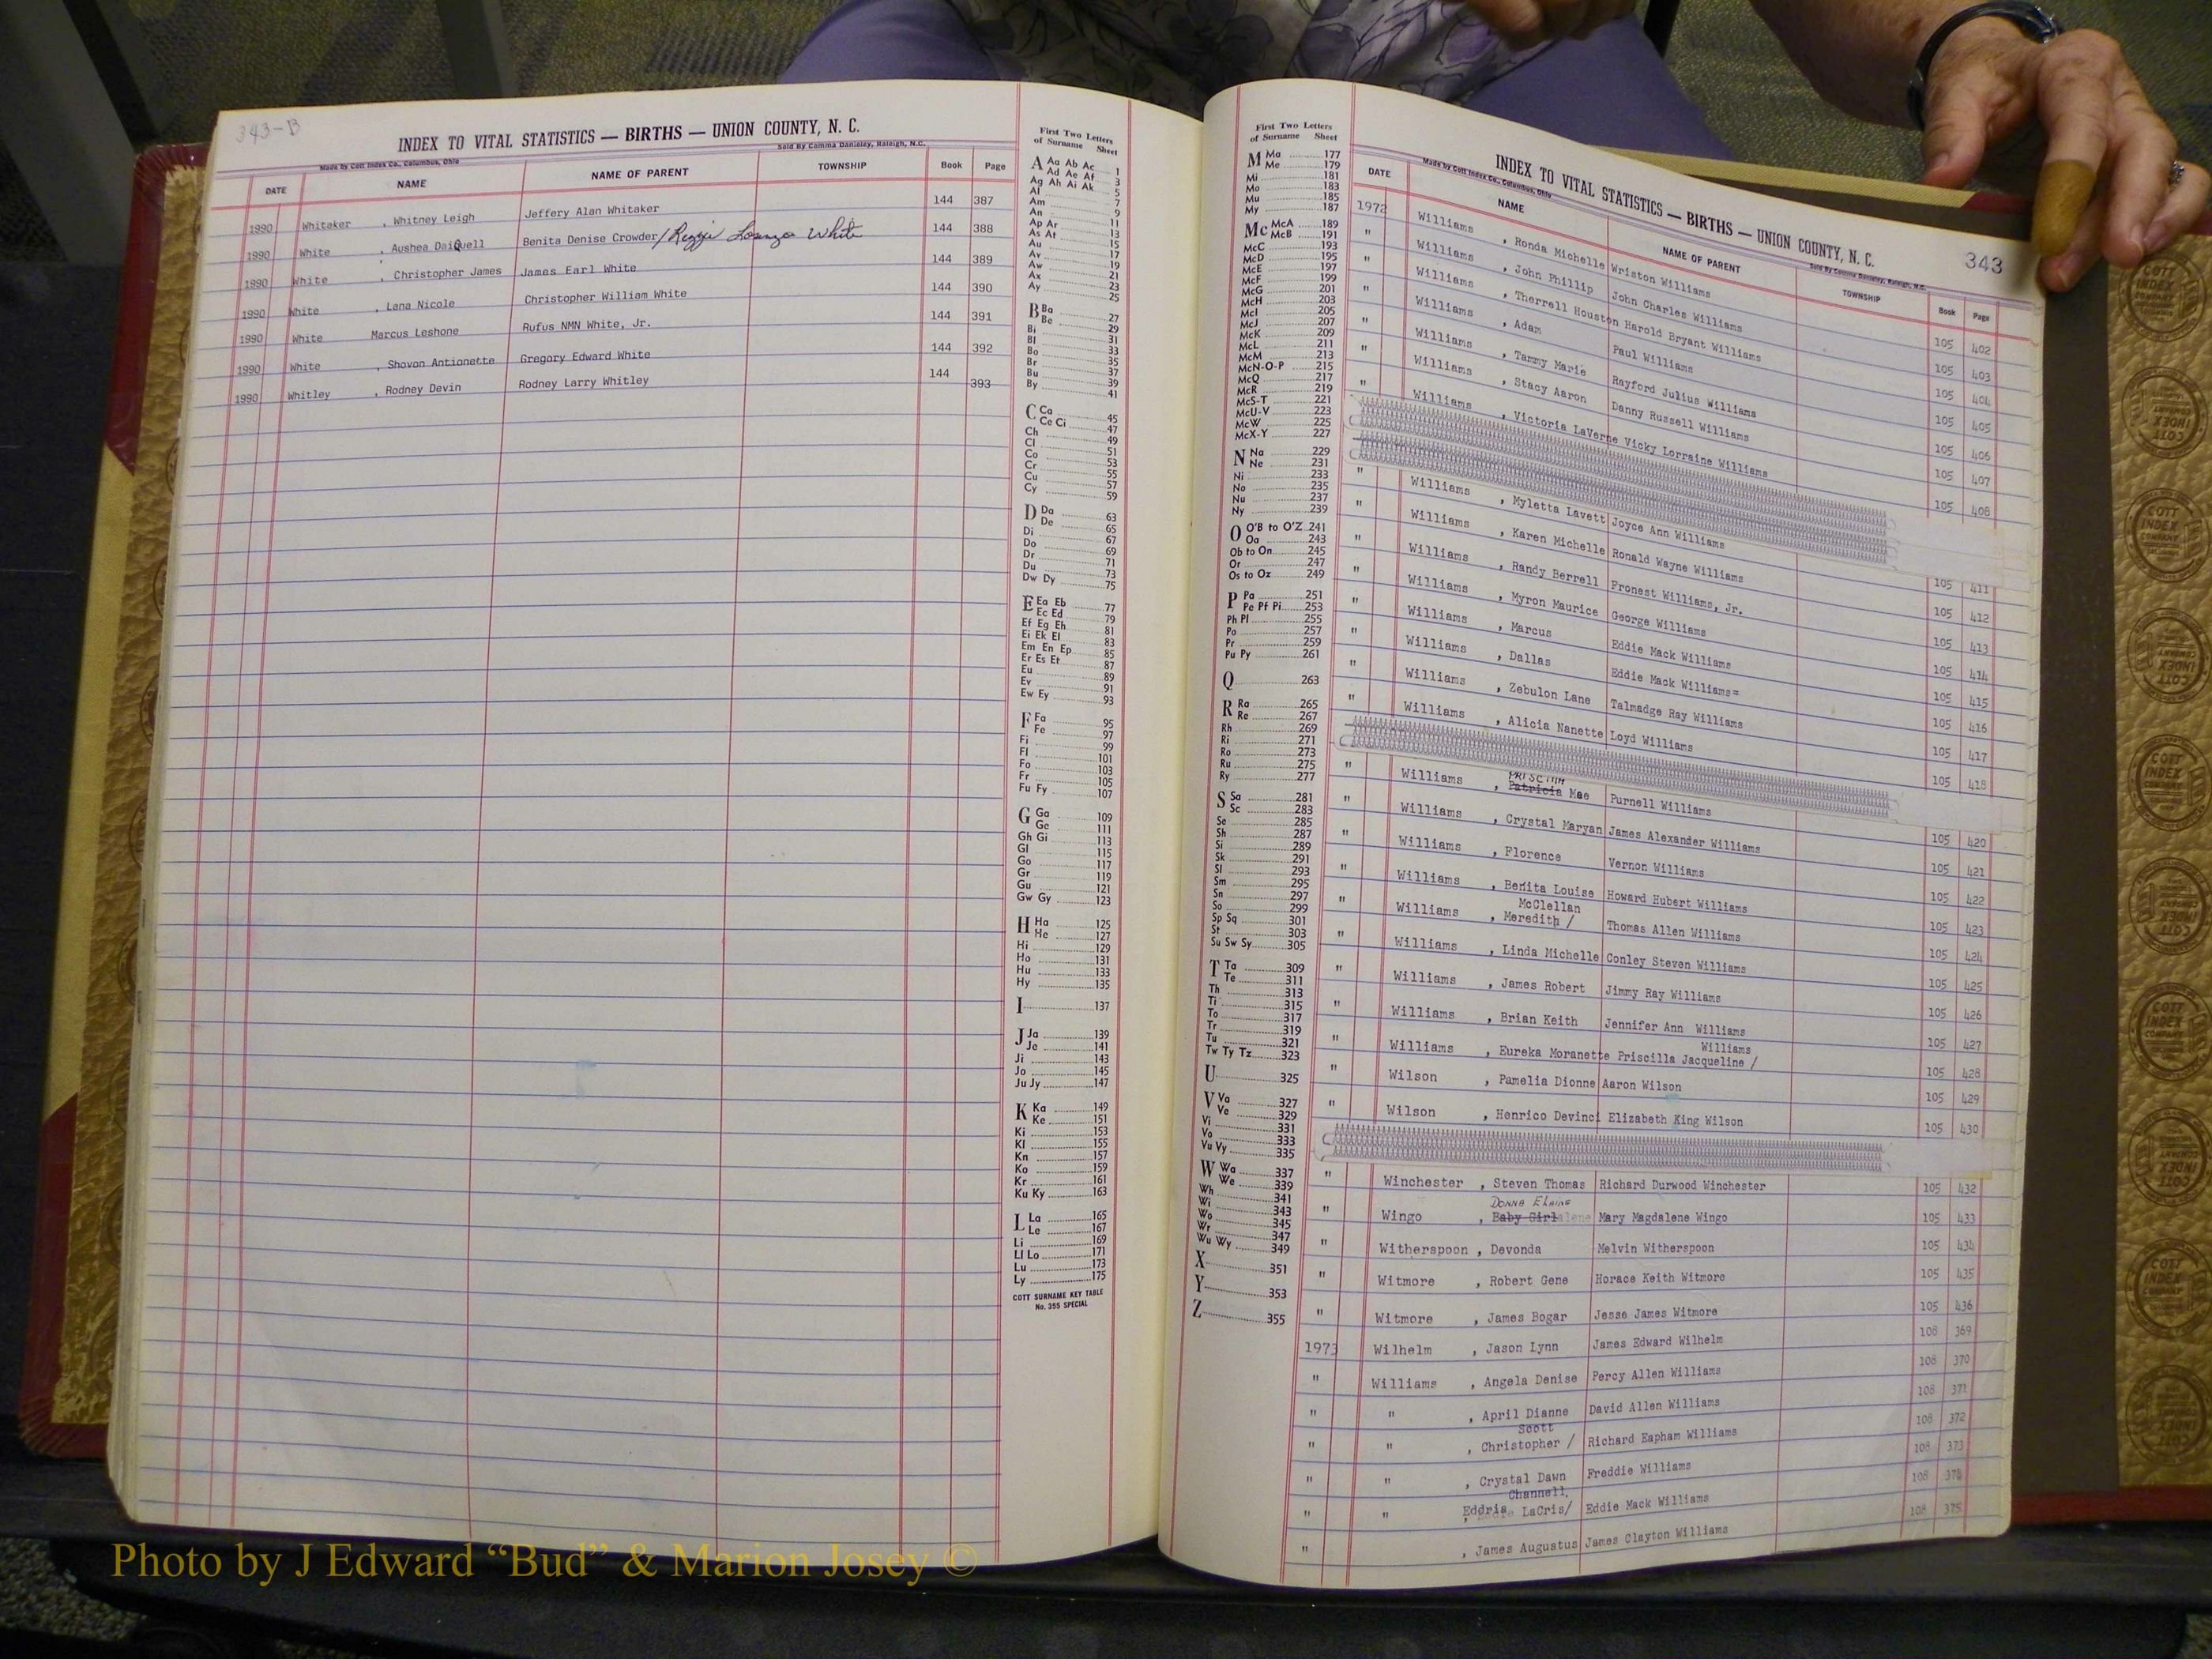 343-B
INDEX TO VITAL STATISTICS — BIRTHS — UNION COUNTY, N. C.
Made by Cott Index Co., Columbus, Ohio Sold By Comma Danieley, Raleigh, N.C.
DATE NAME NAME OF PARENT TOWNSHIP Book Page
1990 Whitaker , Whitney Leigh Jeffery Alan Whitaker 144 387
1990 White , Aushea DaiQuell Benita Denise Crowder/ White 144 388
1990 White , Christopher James James Earl White 144 389
1990 White , Lana Nicole Christopher William White 144 390
1990 White Marcus Leshone Rufus NMN White, Jr. 144 391
1990 White , Shovon Antionette Gregory Edward White 144 392
1990 Whitley , Rodney Devin Rodney Larry Whitley 144 393
First Two Letters
of Surname Sheet
A Aa Ab Ac 1
Ad Ae Af 3
Ag Ah Ai Ak 5
Al 7
Am 9
An 11
Ap Ar 13
As At 15
Au 17
Av 19
Aw 21
Ax 23
Ay 25
B Ba 27
Be 29
Bi 31
Bl 33
Bo 35
Br 37
Bu 39
By 41
C Ca 45
Ce Ci 47
Ch 49
Cl 51
Co 53
Cr 55
Cu 57
Cy 59
D Da 63
De 65
Di 67
Do 69
Dr 71
Du 73
Dw Dy 75
E Ea Eb 77
Ec Ed 79
Ef Eg Eh 81
Ei Ek El 83
Em En Ep 85
Er Es Et 87
Eu 89
Ev 91
Ew Ey 93
F Fa 95
Fe 97
Fi 99
Fl 101
Fo 103
Fr 105
Fu Fy 107
G Ga 109
Ge 111
Gh Gi 113
Gl 115
Go 117
Gr 119
Gu 121
Gw Gy 123
H Ha 125
He 127
Hi 129
Ho 131
Hu 133
Hy 135
I 137
J Ja 139
Je 141
Ji 143
Jo 145
Ju Jy 147
K Ka 149
Ke 151
Ki 153
Kl 155
Kn 157
Ko 159
Kr 161
Ku Ky 163
L La 165
Le 167
Li 169
Ll Lo 171
Lu 173
Ly 175
COTT SURNAME KEY TABLE
No. 355 SPECIAL
First Two Letters
of Surname Sheet
M Ma 177
Me 179
Mi 181
Mo 183
Mu 185
My 187
Mc McA 189
McB 191
McC 193
McD 195
McE 197
McF 199
McG 201
McH 203
McI 205
McJ 207
McK 209
McL 211
McM 213
McN-O-P 215
McQ 217
McR 219
McS-T 221
McU-V 223
McW 225
McX-Y 227
N Na 229
Ne 231
Ni 233
No 235
Nu 237
Ny 239
O O'B to O'Z 241
Oa 243
Ob to On 245
Or 247
Os to Oz 249
P Pa 251
Pe Pf Pi 253
Ph Pl 255
Po 257
Pr 259
Pu Py 261
Q 263
R Ra 265
Re 267
Rh 269
Ri 271
Ro 273
Ru 275
Ry 277
S Sa 281
Sc 283
Se 285
Sh 287
Si 289
Sk 291
Sl 293
Sm 295
Sn 297
So 299
Sp Sq 301
St 303
Su Sw Sy 305
T Ta 309
Te 311
Th 313
Ti 315
To 317
Tr 319
Tu 321
Tw Ty Tz 323
U 325
V Va 327
Ve 329
Vi 331
Vo 333
Vu Vy 335
W Wa 337
We 339
Wh 341
Wi 343
Wo 345
Wr 347
Wu Wy 349
X 351
Y 353
Z 355
INDEX TO VITAL STATISTICS — BIRTHS — UNION COUNTY, N. C. 343
Made by Cott Index Co., Columbus, Ohio Sold By Comma Danieley, Raleigh, N.C.
DATE NAME NAME OF PARENT TOWNSHIP Book Page
1972 Williams , Ronda Michelle Wriston Williams 105 402
" Williams , John Phillip John Charles Williams 105 403
" Williams , Therrell Houston Harold Bryant Williams 105 404
" Williams , Adam Paul Williams 105 405
" Williams , Tammy Marie Rayford Julius Williams 105 406
" Williams , Stacy Aaron Danny Russell Williams 105 407
" Williams , Victoria LaVerne Vicky Lorraine Williams 105 408
" Williams , Myletta Lavett Joyce Ann Williams 105 411
" Williams , Karen Michelle Ronald Wayne Williams 105 412
" Williams , Randy Berrell Fronest Williams, Jr. 105 413
" Williams , Myron Maurice George Williams 105 414
" Williams , Marcus Eddie Mack Williams 105 415
" Williams , Dallas Eddie Mack Williams= 105 416
" Williams , Zebulon Lane Talmadge Ray Williams 105 417
" Williams , Alicia Nanette Loyd Williams 105 418
" Williams , Patricia Mae Purnell Williams 105 420
" Williams , Crystal Maryan James Alexander Williams 105 421
" Williams , Florence Vernon Williams 105 422
" Williams , Benita Louise Howard Hubert Williams 105 423
McClellan
" Williams , Meredith / Thomas Allen Williams 105 424
" Williams , Linda Michelle Conley Steven Williams 105 425
" Williams , James Robert Jimmy Ray Williams 105 426
" Williams , Brian Keith Jennifer Ann Williams 105 427
Williams
" Williams , Eureka Moranette Priscilla Jacqueline / 105 428
" Wilson , Pamelia Dionne Aaron Wilson 105 429
" Wilson , Henrico Devinci Elizabeth King Wilson 105 430
" Winchester , Steven Thomas Richard Durwood Winchester 105 432
DONNA ELAINE
" Wingo , Baby Girl Mary Magdalene Wingo 105 433
" Witherspoon , Devonda Melvin Witherspoon 105 434
" Witmore , Robert Gene Horace Keith Witmore 105 435
" Witmore , James Bogar Jesse James Witmore 105 436
1973 Wilhelm , Jason Lynn James Edward Wilhelm 108 369
" Williams , Angela Denise Percy Allen Williams 108 370
" " , April Dianne David Allen Williams 108 371
Scott
" " , Christopher / Richard Eapham Williams 108 372
" " , Crystal Dawn Freddie Williams 108 373
Channell,
" " Eddria LaCris/ Eddie Mack Williams 108
" , James Augustus James Clayton Williams 108 375
Photo by J Edward “Bud” & Marion Josey ©